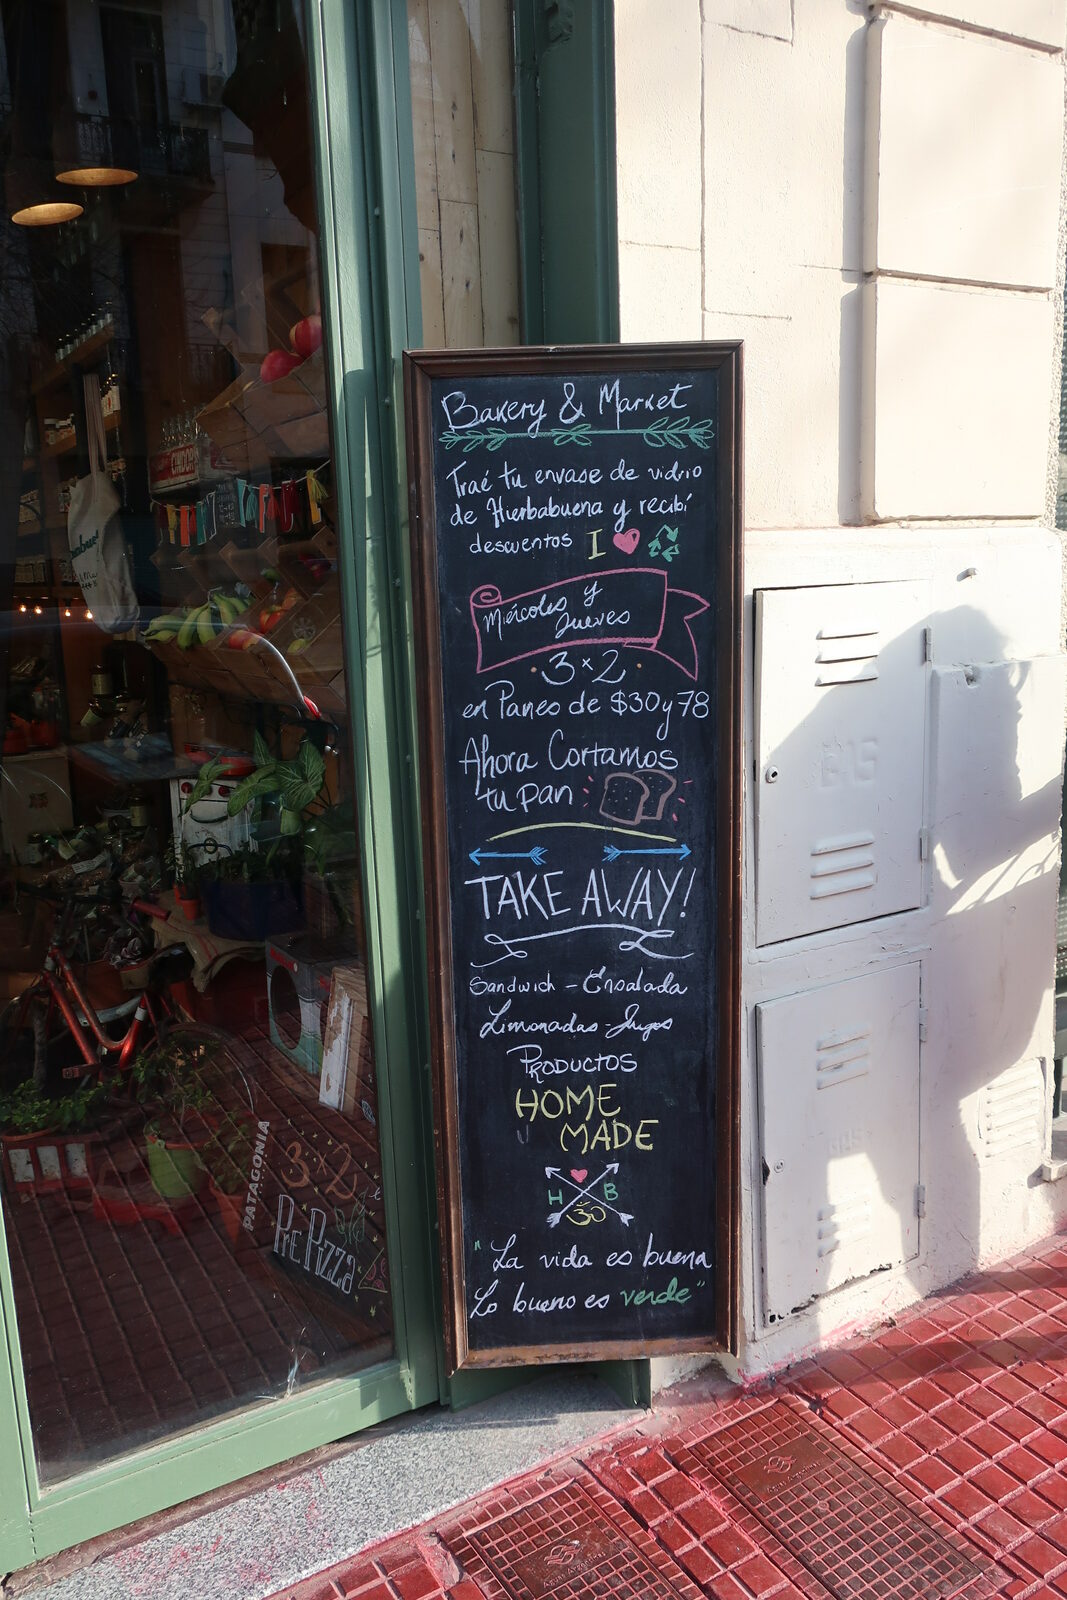 Bakery & Market
Traé tu envase de vidrio
de Hierbabuena y recibí
descuentos I
Miércoles y
Jueves
3x2
en Panes de $30 y 78
Ahora Cortamos
tu pan
TAKE AWAY!
Sandwich - Ensalada
Limonadas - Jugos
PRODUCTOS
HOME
MADE
H B
ॐ
"La vida es buena
Lo bueno es verde"
PATAGONIA
3x2 de
PRE PIZZA
CINDOR
GAS
GAS